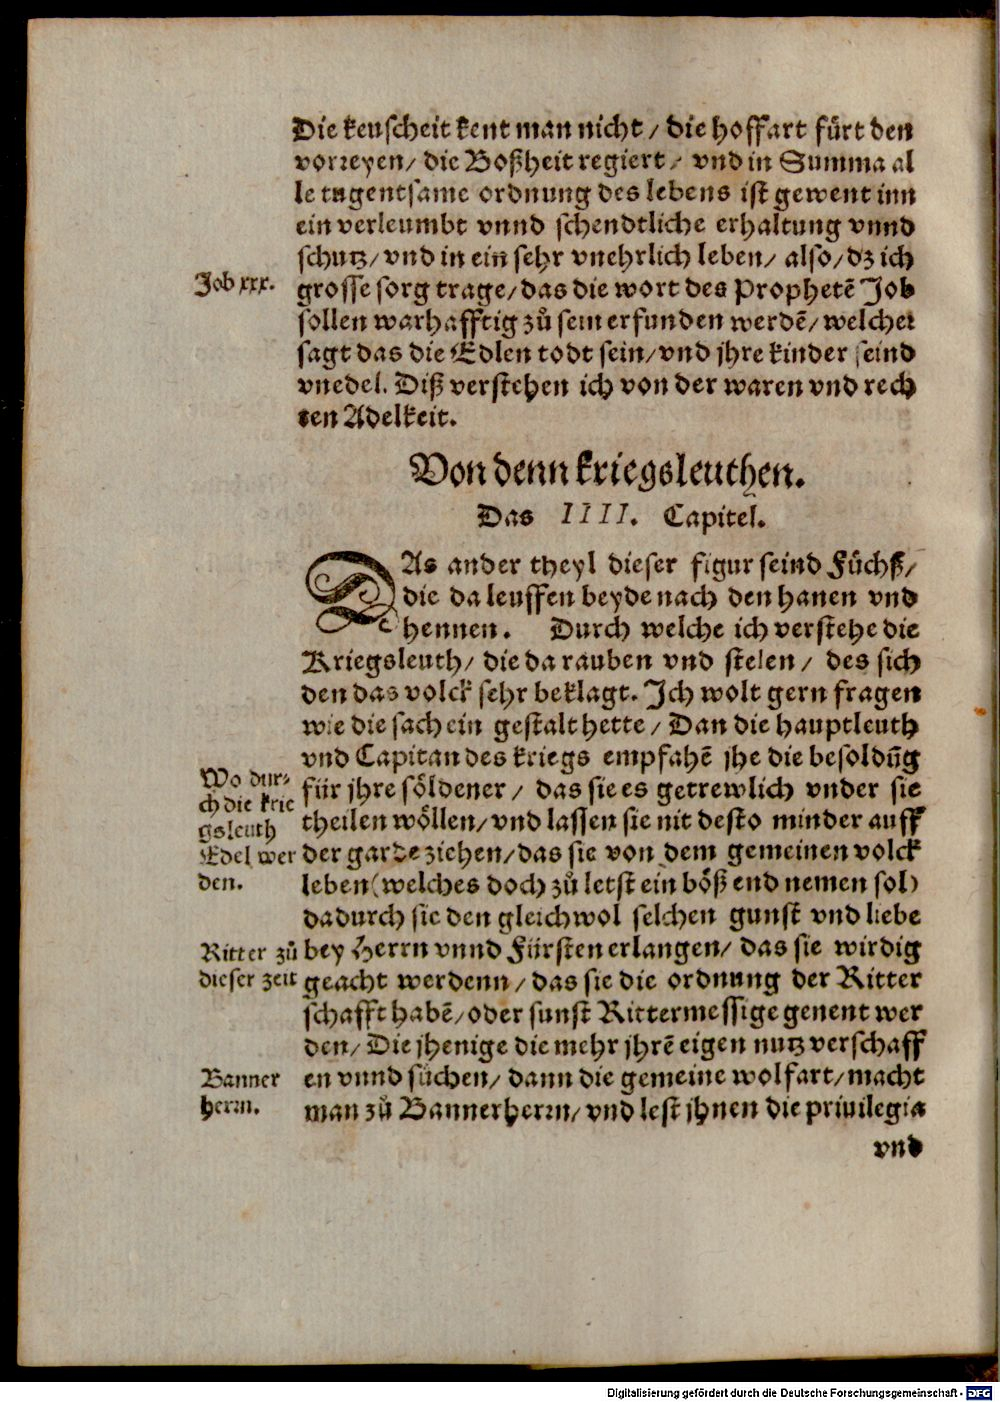 Die keuscheit kent man nicht / die hoffart fůrt den
vorreyen / die Boßheit regiert / vnd in Summa al
le tugentsame ordnung des lebens ist gewent inn
ein verleumbt vnnd schendtliche erhaltung vnnd
schutz / vnd in ein sehr vnehrlich leben / also / dz ich
Job xxx.
grosse sorg trage / das die wort des Prophetē Job
sollen warhafftig zů sein erfunden werdē / welcher
sagt das die Edlen todt sein / vnd jhre kinder seind
vnedel. Diß verstehen ich von der waren vnd rech
ten Adelkeit.
Von denn kriegsleuthen.
Das IIII. Capitel.
DAs ander theyl dieser figur seind Fůchß /
die da leuffen beyde nach den hanen vnd
hennen. Durch welche ich verstehe die
Kriegsleuth / die da rauben vnd stelen / des sich
den das volck sehr beklagt. Ich wolt gern fragen
wie die sach ein gestalt hette / Dan die hauptleuth
vnd Capitan des kriegs empfahē jhe die besoldūg
Wo dur-
ch die krie
gsleuth
Edel wer
den.
für jhre söldener / das sie es getrewlich vnder sie
theilen wöllen / vnd lassen sie nit desto minder auff
der garde ziehen / das sie von dem gemeinen volck
leben (welches doch zů letst ein böß end nemen sol)
dadurch sie den gleichwol selchen gunst vnd liebe
Ritter zů
dieser zeit
bey Herrn vnnd Fürsten erlangen / das sie wirdig
geacht werdenn / das sie die ordnung der Ritter
schafft habē / oder sunst Rittermessige genent wer
den / Die jhenige die mehr jhrē eigen nutz verschaff
Banner
herrn.
en vnnd sůchen / dann die gemeine wolfart / macht
man zů Bannerherrn / vnd lest jhnen die priuilegia
vnd
Digitalisierung gefördert durch die Deutsche Forschungsgemeinschaft - DFG